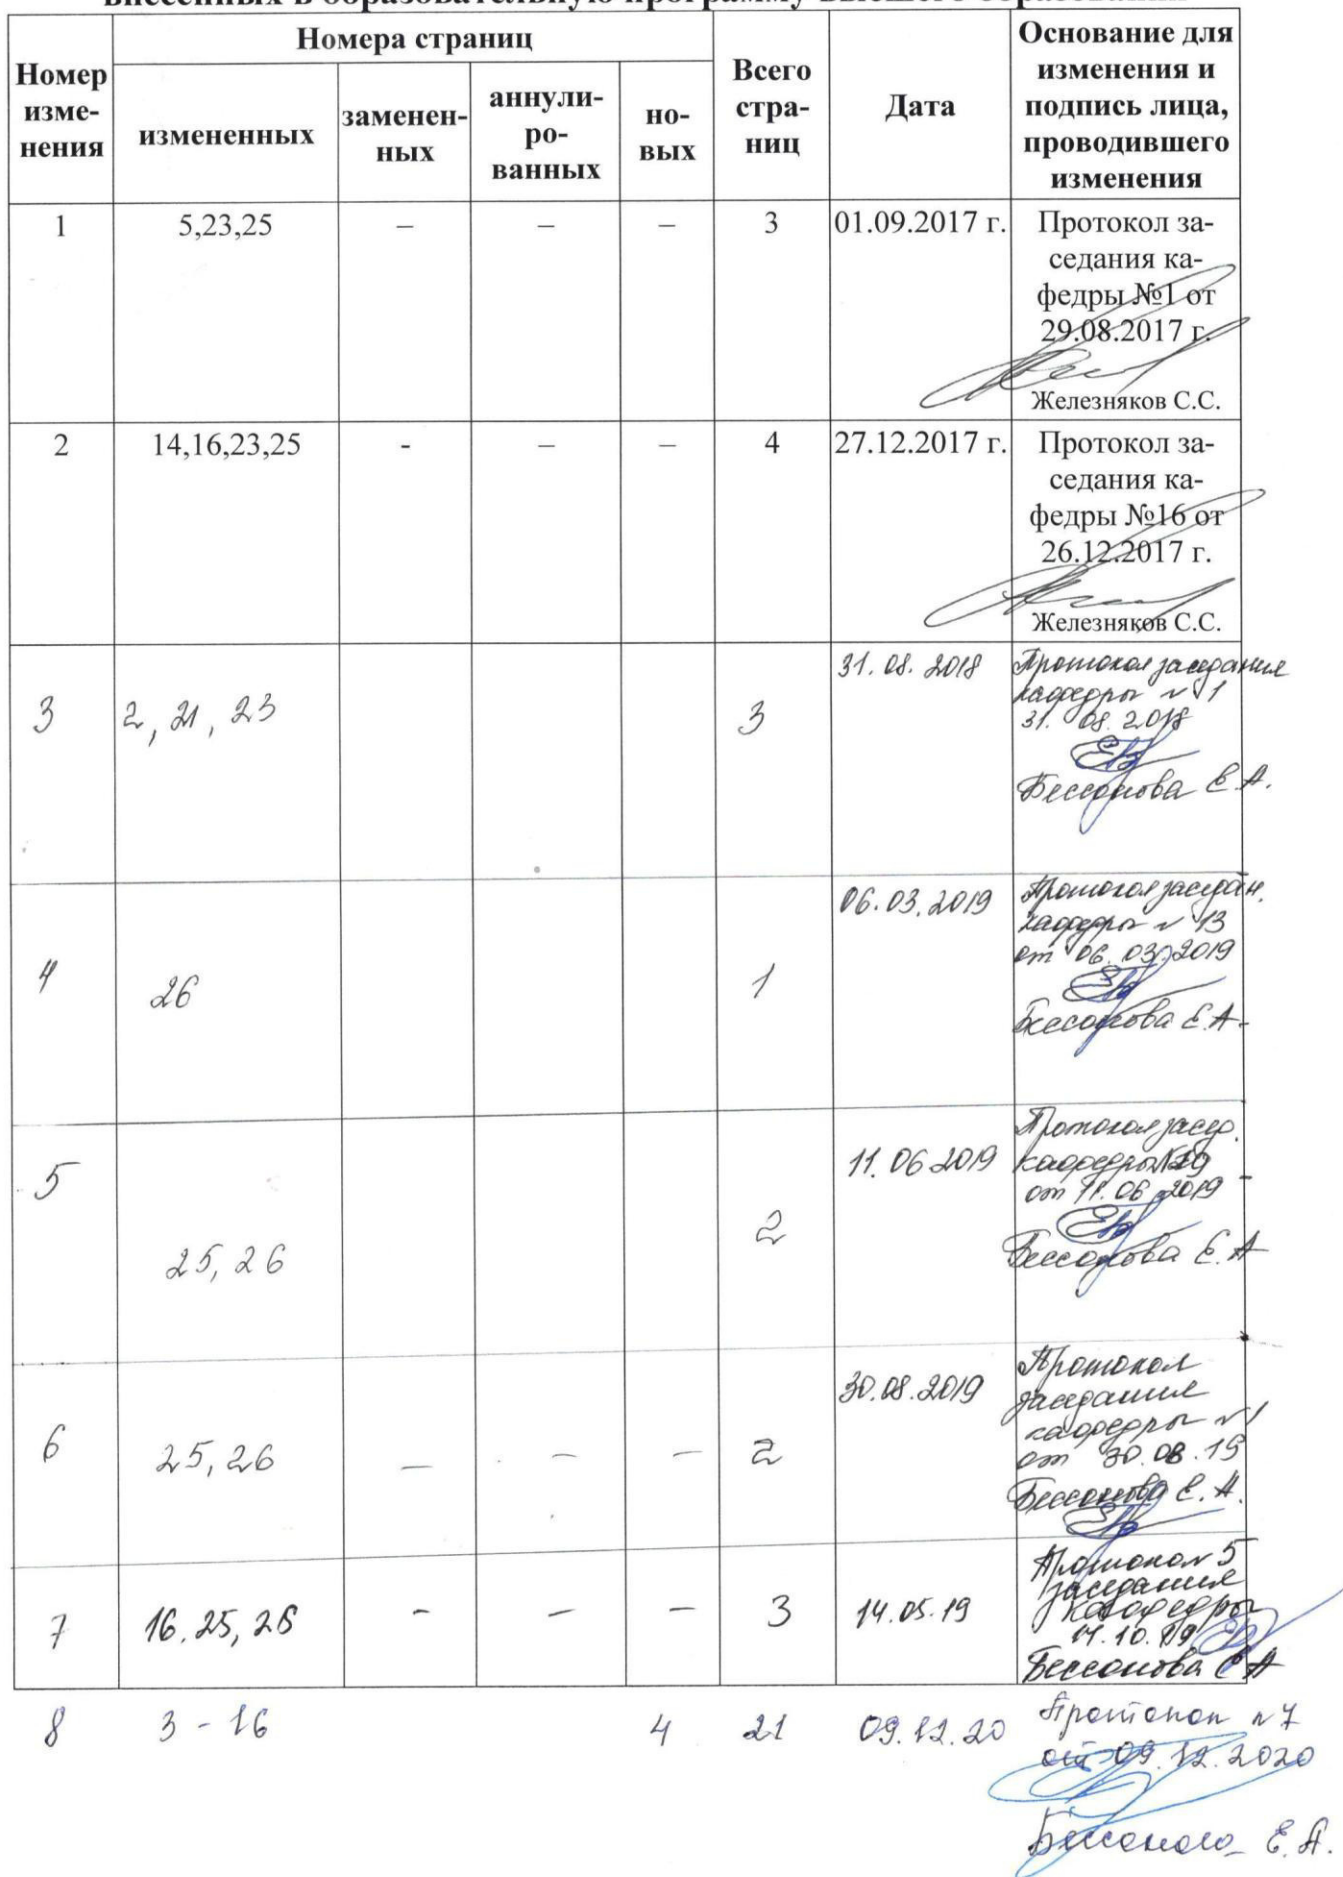 внесенных в образовательную программу высшего образования
Номер
изме-
нения
Номера страниц
измененных
заменен-
ных
аннули-
ро-
ванных
но-
вых
Всего
стра-
ниц
Дата
Основание для
изменения и
подпись лица,
проводившего
изменения
1 5,23,25 – – – 3 01.09.2017 г. Протокол за-
седания ка-
федры №1 от
29.08.2017 г.
Железняков С.С.
2 14,16,23,25 - – – 4 27.12.2017 г. Протокол за-
седания ка-
федры №16 от
26.12.2017 г.
Железняков С.С.
3 2, 21, 23 3 31.08.2018 Протокол заседания
кафедры №1
31.08.2018
Бессонова Е.А.
4 26 1 06.03.2019 Протокол заседан.
кафедры №13
от 06.03.2019
Бессонова Е.А.
5 25, 26 2 11.06.2019 Протокол засед.
кафедры
от 11.06.2019
Бессонова Е.А
6 25, 26 – – – 2 30.08.2019 Протокол
заседания
кафедры №1
от 30.08.19
Бессонова Е.А.
7 16.25, 26 - – – 3 14.05.19 Протокол 5
заседания
кафедры
10.19
Бессонова Е А
8 3 - 16 4 21 09.12.20 Протокол №7
от 09.12.2020
Бессонова Е.А.